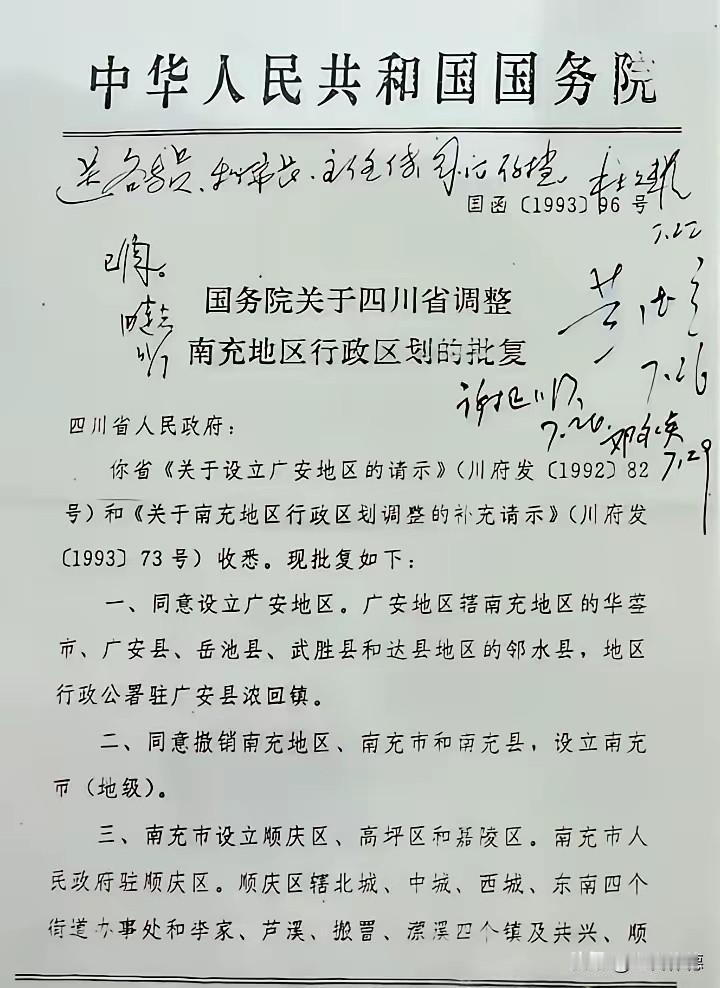 中华人民共和国国务院
国函〔1993〕96号
已阅。
国务院关于四川省调整
南充地区行政区划的批复
7.22
7.26
7.26.
7.29
四川省人民政府：
你省《关于设立广安地区的请示》（川府发〔1992〕82
号）和《关于南充地区行政区划调整的补充请示》（川府发
〔1993〕73号）收悉。现批复如下：
一、同意设立广安地区。广安地区辖南充地区的华蓥
市、广安县、岳池县、武胜县和达县地区的邻水县，地区
行政公署驻广安县浓回镇。
二、同意撤销南充地区、南充市和南充县，设立南充
市（地级）。
三、南充市设立顺庆区、高坪区和嘉陵区。南充市人
民政府驻顺庆区。顺庆区辖北城、中城、西城、东南四个
街道办事处和李家、芦溪、搬罾、潆溪四个镇及共兴、顺